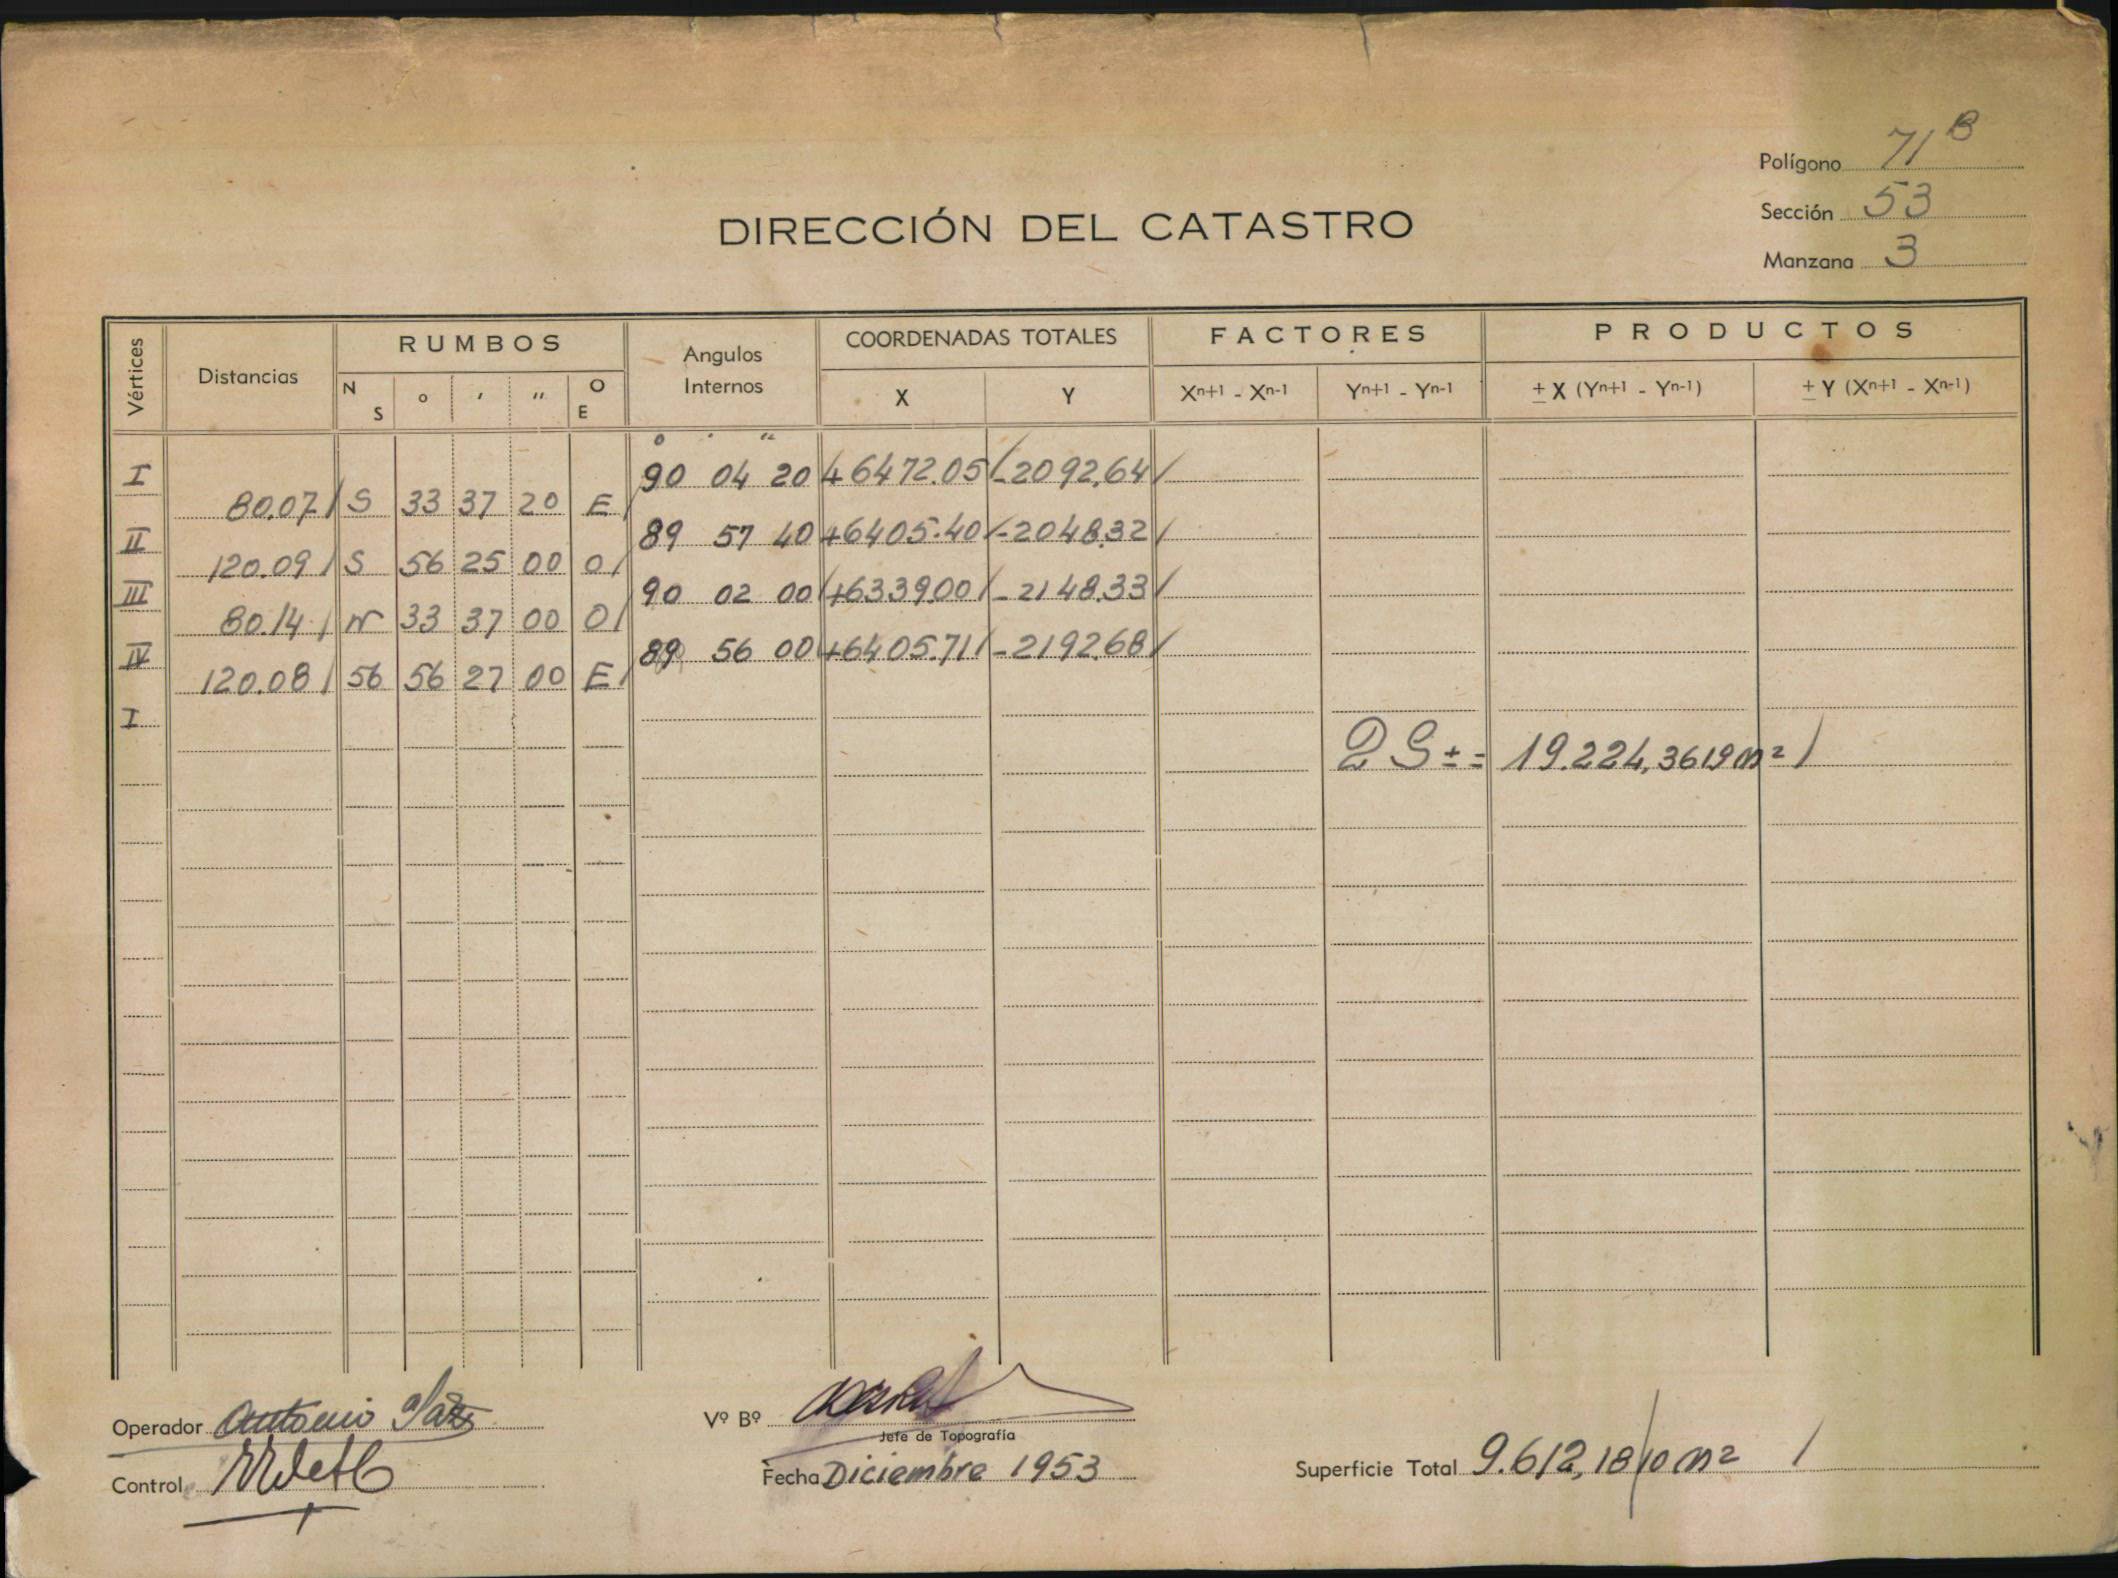 Polígono 71 B
Sección 53
Manzana 3
DIRECCIÓN DEL CATASTRO
Vértices Distancias RUMBOS Angulos Internos COORDENADAS TOTALES FACTORES PRODUCTOS
N S o ' '' O E X Y Xn+1 - Xn-1 Yn+1 - Yn-1 ± X (Yn+1 - Yn-1) ± Y (Xn+1 - Xn-1)
o ' ''
I 90 04 20 +6472.05 -2092.64
80.07 S 33 37 20 E
II 89 57 40 +6405.40 -2048.32
120.09 S 56 25 00 O
III 90 02 00 +6339.00 -2148.33
80.14 N 33 37 00 O
IV 89 56 00 +6405.71 -2192.68
120.08 56 56 27 00 E
I
2 S ± = 19.224,3619 m²
Operador Antonio
Vº Bº
Jefe de Topografía
Control
Fecha Diciembre 1953
Superficie Total 9.612,18/10 m²